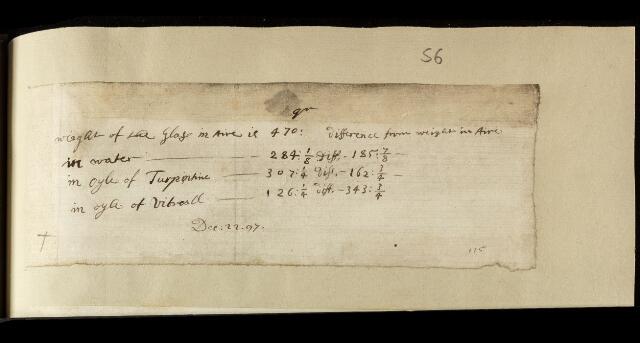 56
gr
weight of the Glass in Aire is 470: difference from weight in Aire
in water 284:1/8 Diff. - 185:7/8
in oyle of Turpentine 307:1/4 Diff. - 162:3/4
in oyle of Vitrioll 126:1/4 Diff. - 343:3/4
Dec. 22. 97.
115